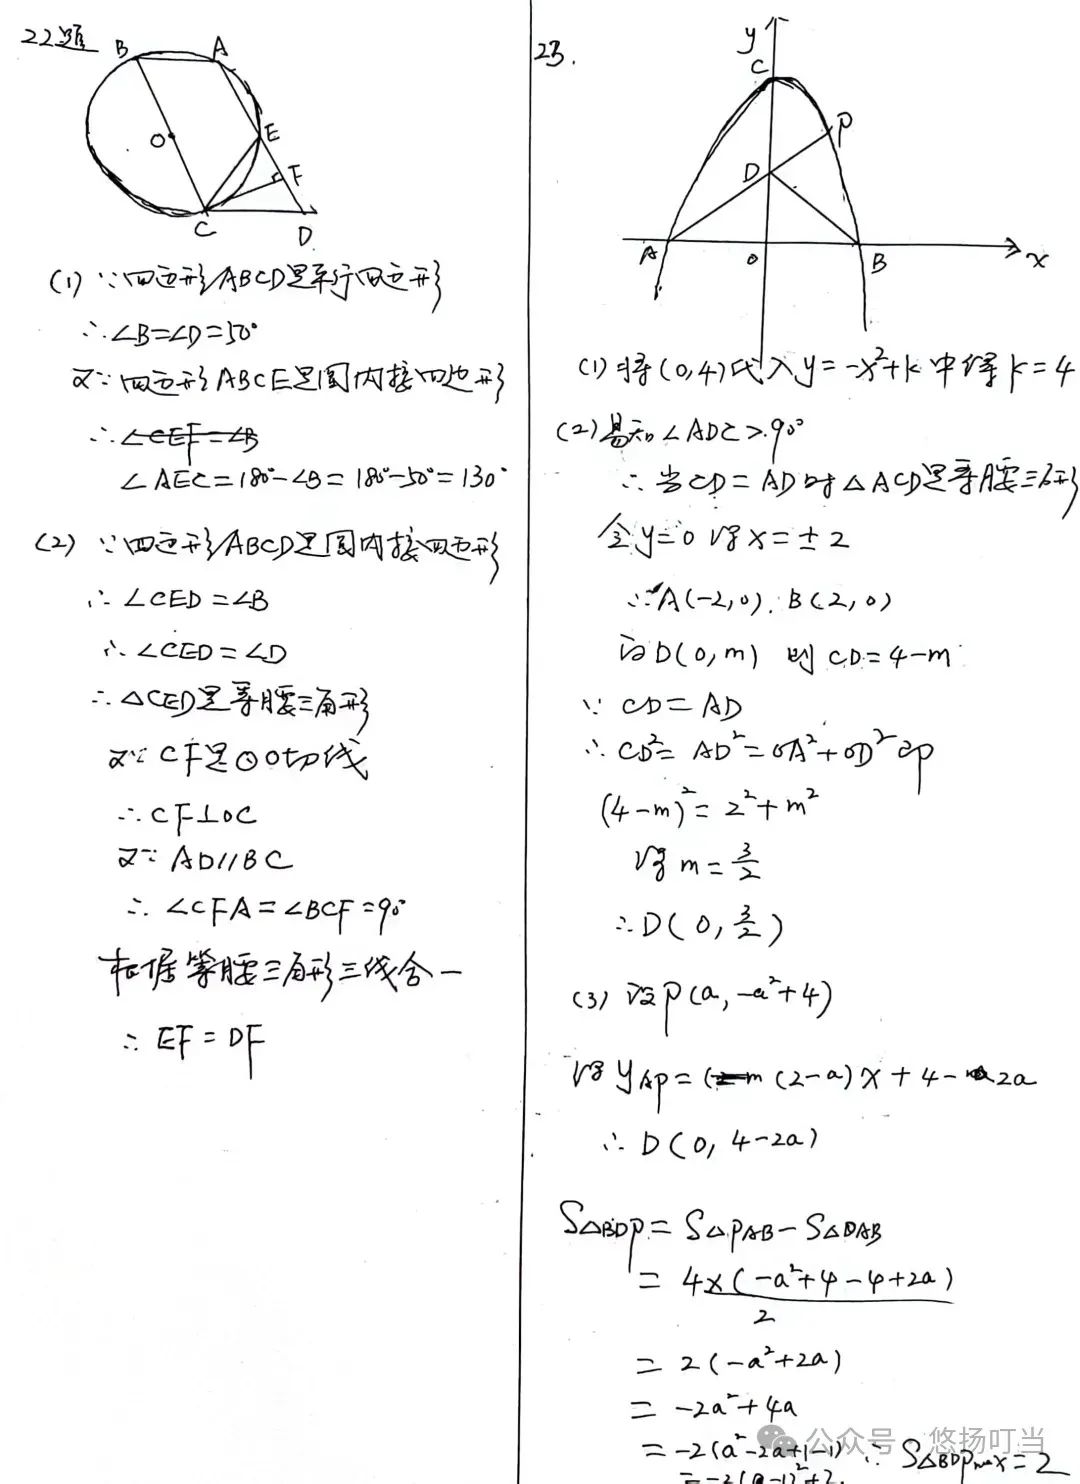 22题
B
A
O
E
F
C
D
(1) ∵四边形ABCD是平行四边形
∴∠B=∠D=50°
又∵四边形ABCE是圆内接四边形
∴∠CEF=∠B
∠AEC=180°-∠B=180°-50°=130°
(2) ∵四边形ABCD是圆内接四边形
∴∠CED=∠B
∴∠CED=∠D
∴△CED是等腰三角形
又∵CF是⊙O切线
∴CF⊥OC
又∵AD//BC
∴∠CFA=∠BCF=90°
根据等腰三角形三线合一
∴EF=DF
23.
y
C
P
D
A
O
B
x
(1)将(0,4)代入y=-x²+k中得k=4
(2)易知∠ADC>90°
∴当CD=AD时△ACD是等腰三角形
令y=0得x=±2
∴A(-2,0).B(2,0)
设D(0,m) 则CD=4-m
∵CD=AD
∴CD²=AD²=OA²+OD²即
(4-m)²=2²+m²
得m=3/2
∴D(0,3/2)
(3)设P(a,-a²+4)
得yAP=(2-a)x+4-2a
∴D(0,4-2a)
S△BDP=S△PAB-S△DAB
=4×(-a²+4-4+2a)/2
=2(-a²+2a)
=-2a²+4a
=-2(a²-2a+1-1) ∴S△BDPmax=2
=-2(a-1)²+2.
公众号 · 悠扬叮当